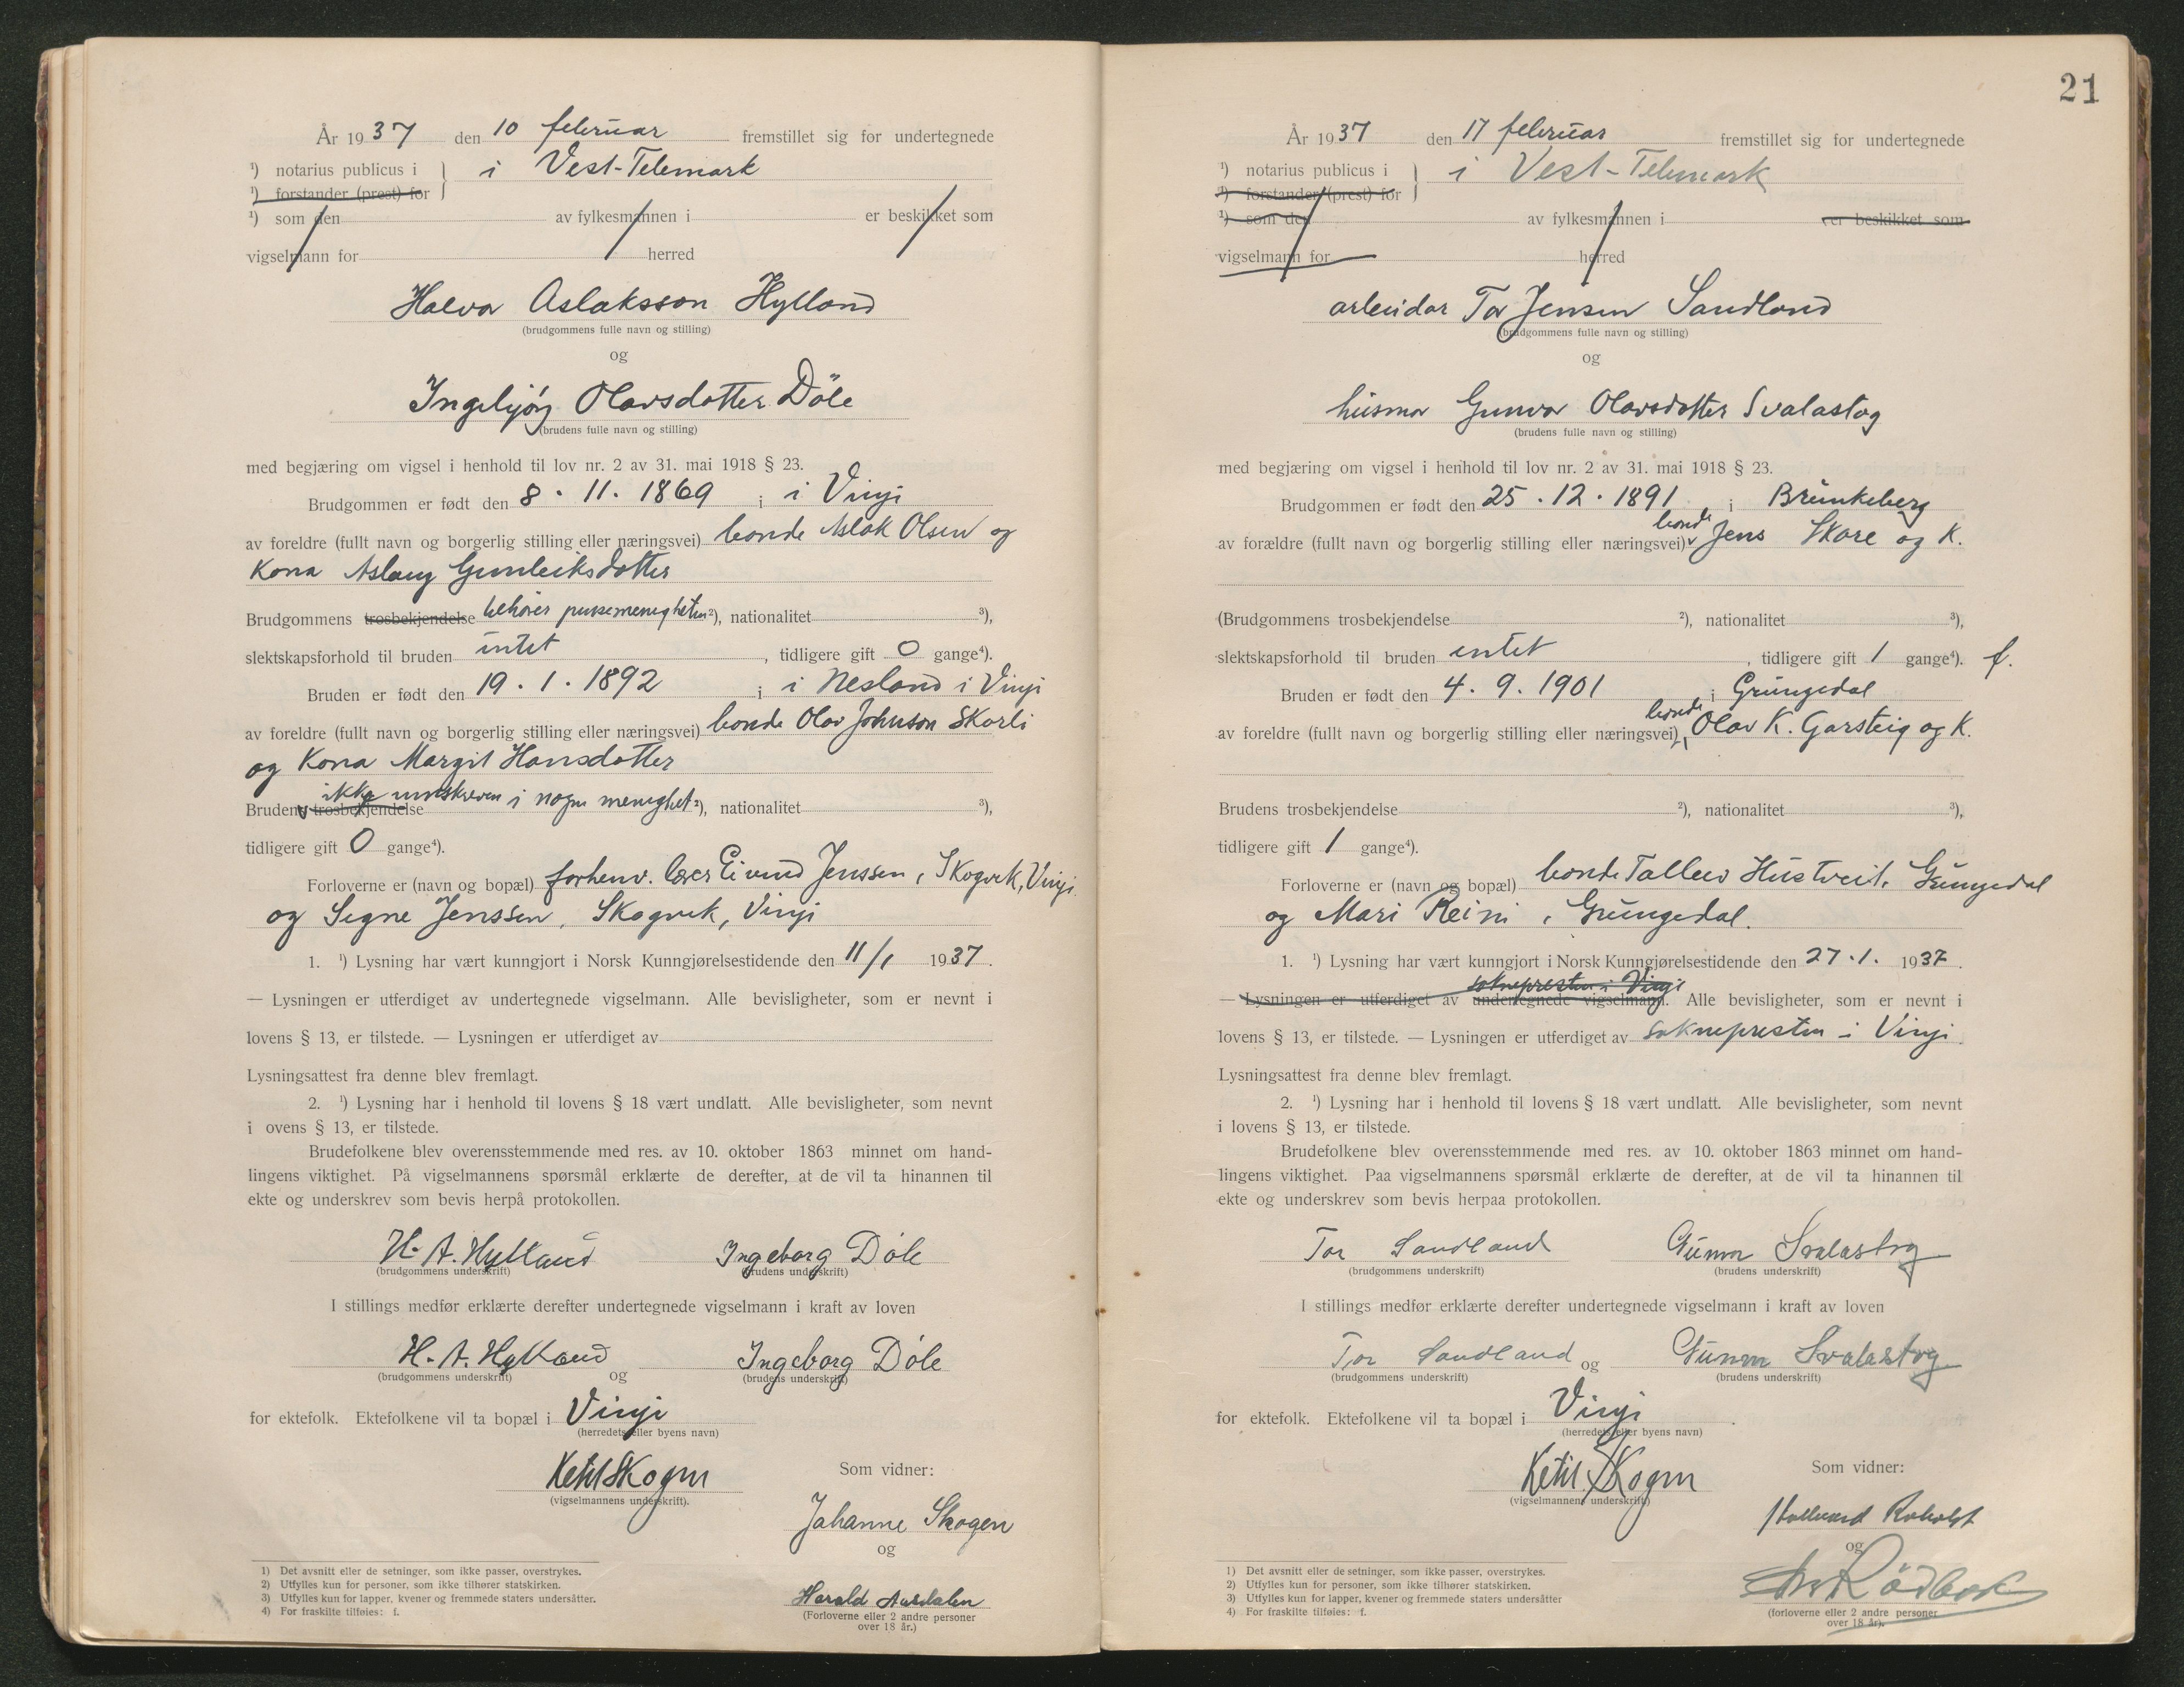 År 1937 den 10 februar fremstillet sig for undertegnede
¹) notarius publicus i } i Vest-Telemark
¹) forstander (prest) for
¹) som den av fylkesmannen i er beskikket som
vigselmann for herred
Halvor Aslaksson Hylland
(brudgommens fulle navn og stilling)
og
Ingebjörg Olavsdotter Döle
(brudens fulle navn og stilling)
med begjæring om vigsel i henhold til lov nr. 2 av 31. mai 1918 § 23.
Brudgommen er født den 8. 11. 1869 i i Vinje
av foreldre (fullt navn og borgerlig stilling eller næringsvei) bonde Aslak Olsen og
Kona Aslaug Gunleiksdotter
Brudgommens trosbekjendelse tilhører pinsemenigheten ²), nationalitet ³),
slektskapsforhold til bruden intet, tidligere gift 0 gange⁴).
Bruden er født den 19. 1. 1892 i i Nesland i Vinje
av foreldre (fullt navn og borgerlig stilling eller næringsvei) bonde Olav Johnson Skarli
og Kona Margit Hansdotter
Brudens trosbekjendelse ikke innskreven i nogen menighet ²), nationalitet ³),
tidligere gift 0 gange⁴).
Forloverne er (navn og bopæl) forhenv. lærer Eivind Jenssen, Skogvik, Vinje
og Signe Jenssen, Skogvik, Vinje
1. ¹) Lysning har vært kunngjort i Norsk Kunngjørelsestidende den 11/1 1937.
— Lysningen er utferdiget av undertegnede vigselmann. Alle bevisligheter, som er nevnt i
lovens § 13, er tilstede. — Lysningen er utferdiget av
Lysningsattest fra denne blev fremlagt.
2. ¹) Lysning har i henhold til lovens § 18 vært undlatt. Alle bevisligheter, som nevnt
i ovens § 13, er tilstede.
Brudefolkene blev overensstemmende med res. av 10. oktober 1863 minnet om hand-
lingens viktighet. På vigselmannens spørsmål erklærte de derefter, at de vil ta hinannen til
ekte og underskrev som bevis herpå protokollen.
H. A. Hylland Ingeborg Döle
(brudgommens underskrift) (brudens underskrift)
I stillings medfør erklærte derefter undertegnede vigselmann i kraft av loven
H. A. Hylland og Ingeborg Döle
(brudgommens underskrift) (brudens underskrift)
for ektefolk. Ektefolkene vil ta bopæl i Vinje
(herredets eller byens navn)
Ketil Skogen
(vigselmannens underskrift).
Som vidner:
Johanne Skogen
og
Harald
(Forloverne eller 2 andre personer
over 18 år.)
1) Det avsnitt eller de setninger, som ikke passer, overstrykes.
2) Utfylles kun for personer, som ikke tilhører statskirken.
3) Utfylles kun for lapper, kvener og fremmede staters undersåtter.
4) For fraskilte tilføies: f.
21
År 1937 den 17 februar fremstillet sig for undertegnede
¹) notarius publicus i } i Vest-Telemark
¹) forstander (prest) for
¹) som den av fylkesmannen i er beskikket som
vigselmann for herred
arbeidar Tor Jensen Sandland
(brudgommens fulle navn og stilling)
og
husmor Gunvor Olavsdotter Svalastog
(brudens fulle navn og stilling)
med begjæring om vigsel i henhold til lov nr. 2 av 31. mai 1918 § 23.
Brudgommen er født den 25. 12. 1891 i Brunkeberg
av forældre (fullt navn og borgerlig stilling eller næringsvei) bonde Jens Skare og K.
(Brudgommens trosbekjendelse ²), nationalitet ³),
slektskapsforhold til bruden intet, tidligere gift 1 gange⁴). f.
Bruden er født den 4. 9. 1901 i Grungedal
av foreldre (fullt navn og borgerlig stilling eller næringsvei) bonde Olav K. Garsteig og K.
Brudens trosbekjendelse ²), nationalitet ³),
tidligere gift 1 gange⁴).
Forloverne er (navn og bopæl) bonde Tallev Hustveit, Grungedal
og Mari Reini, Grungedal.
1. ¹) Lysning har vært kunngjort i Norsk Kunngjørelsestidende den 27.1. 1937.
soknepresten i Vinje
— Lysningen er utferdiget av undertegnede vigselmann. Alle bevisligheter, som er nevnt i
lovens § 13, er tilstede. — Lysningen er utferdiget av soknepresten i Vinje.
Lysningsattest fra denne blev fremlagt.
2. ¹) Lysning har i henhold til lovens § 18 vært undlatt. Alle bevisligheter, som nevnt
i lovens § 13, er tilstede.
Brudefolkene blev overensstemmende med res. av 10. oktober 1863 minnet om hand-
lingens viktighet. Paa vigselmannens spørsmål erklærte de derefter, at de vil ta hinannen til
ekte og underskrev som bevis herpaa protokollen.
Tor Sandland Gunvor Svalastog
(brudgommens underskrift) (brudens underskrift)
I stillings medfør erklærte derefter undertegnede vigselmann i kraft av loven
Tor Sandland og Gunvor Svalastog
(brudgommens underskrift) (brudens underskrift)
for ektefolk. Ektefolkene vil ta bopæl i Vinje.
(herredets eller byens navn)
Ketil Skogen
(vigselmannens underskrift)
Som vidner:
Hallvard Roholdt
og
Rödbok
(forloverne eller 2 andre personer
over 18 år).
1) Det avsnitt eller de setninger, som ikke passer, overstrykes.
2) Utfylles kun for personer, som ikke tilhører statskirken.
3) Utfylles kun for lapper, kvener og fremmede staters undersåtter
4) For fraskilte tilføies: f.